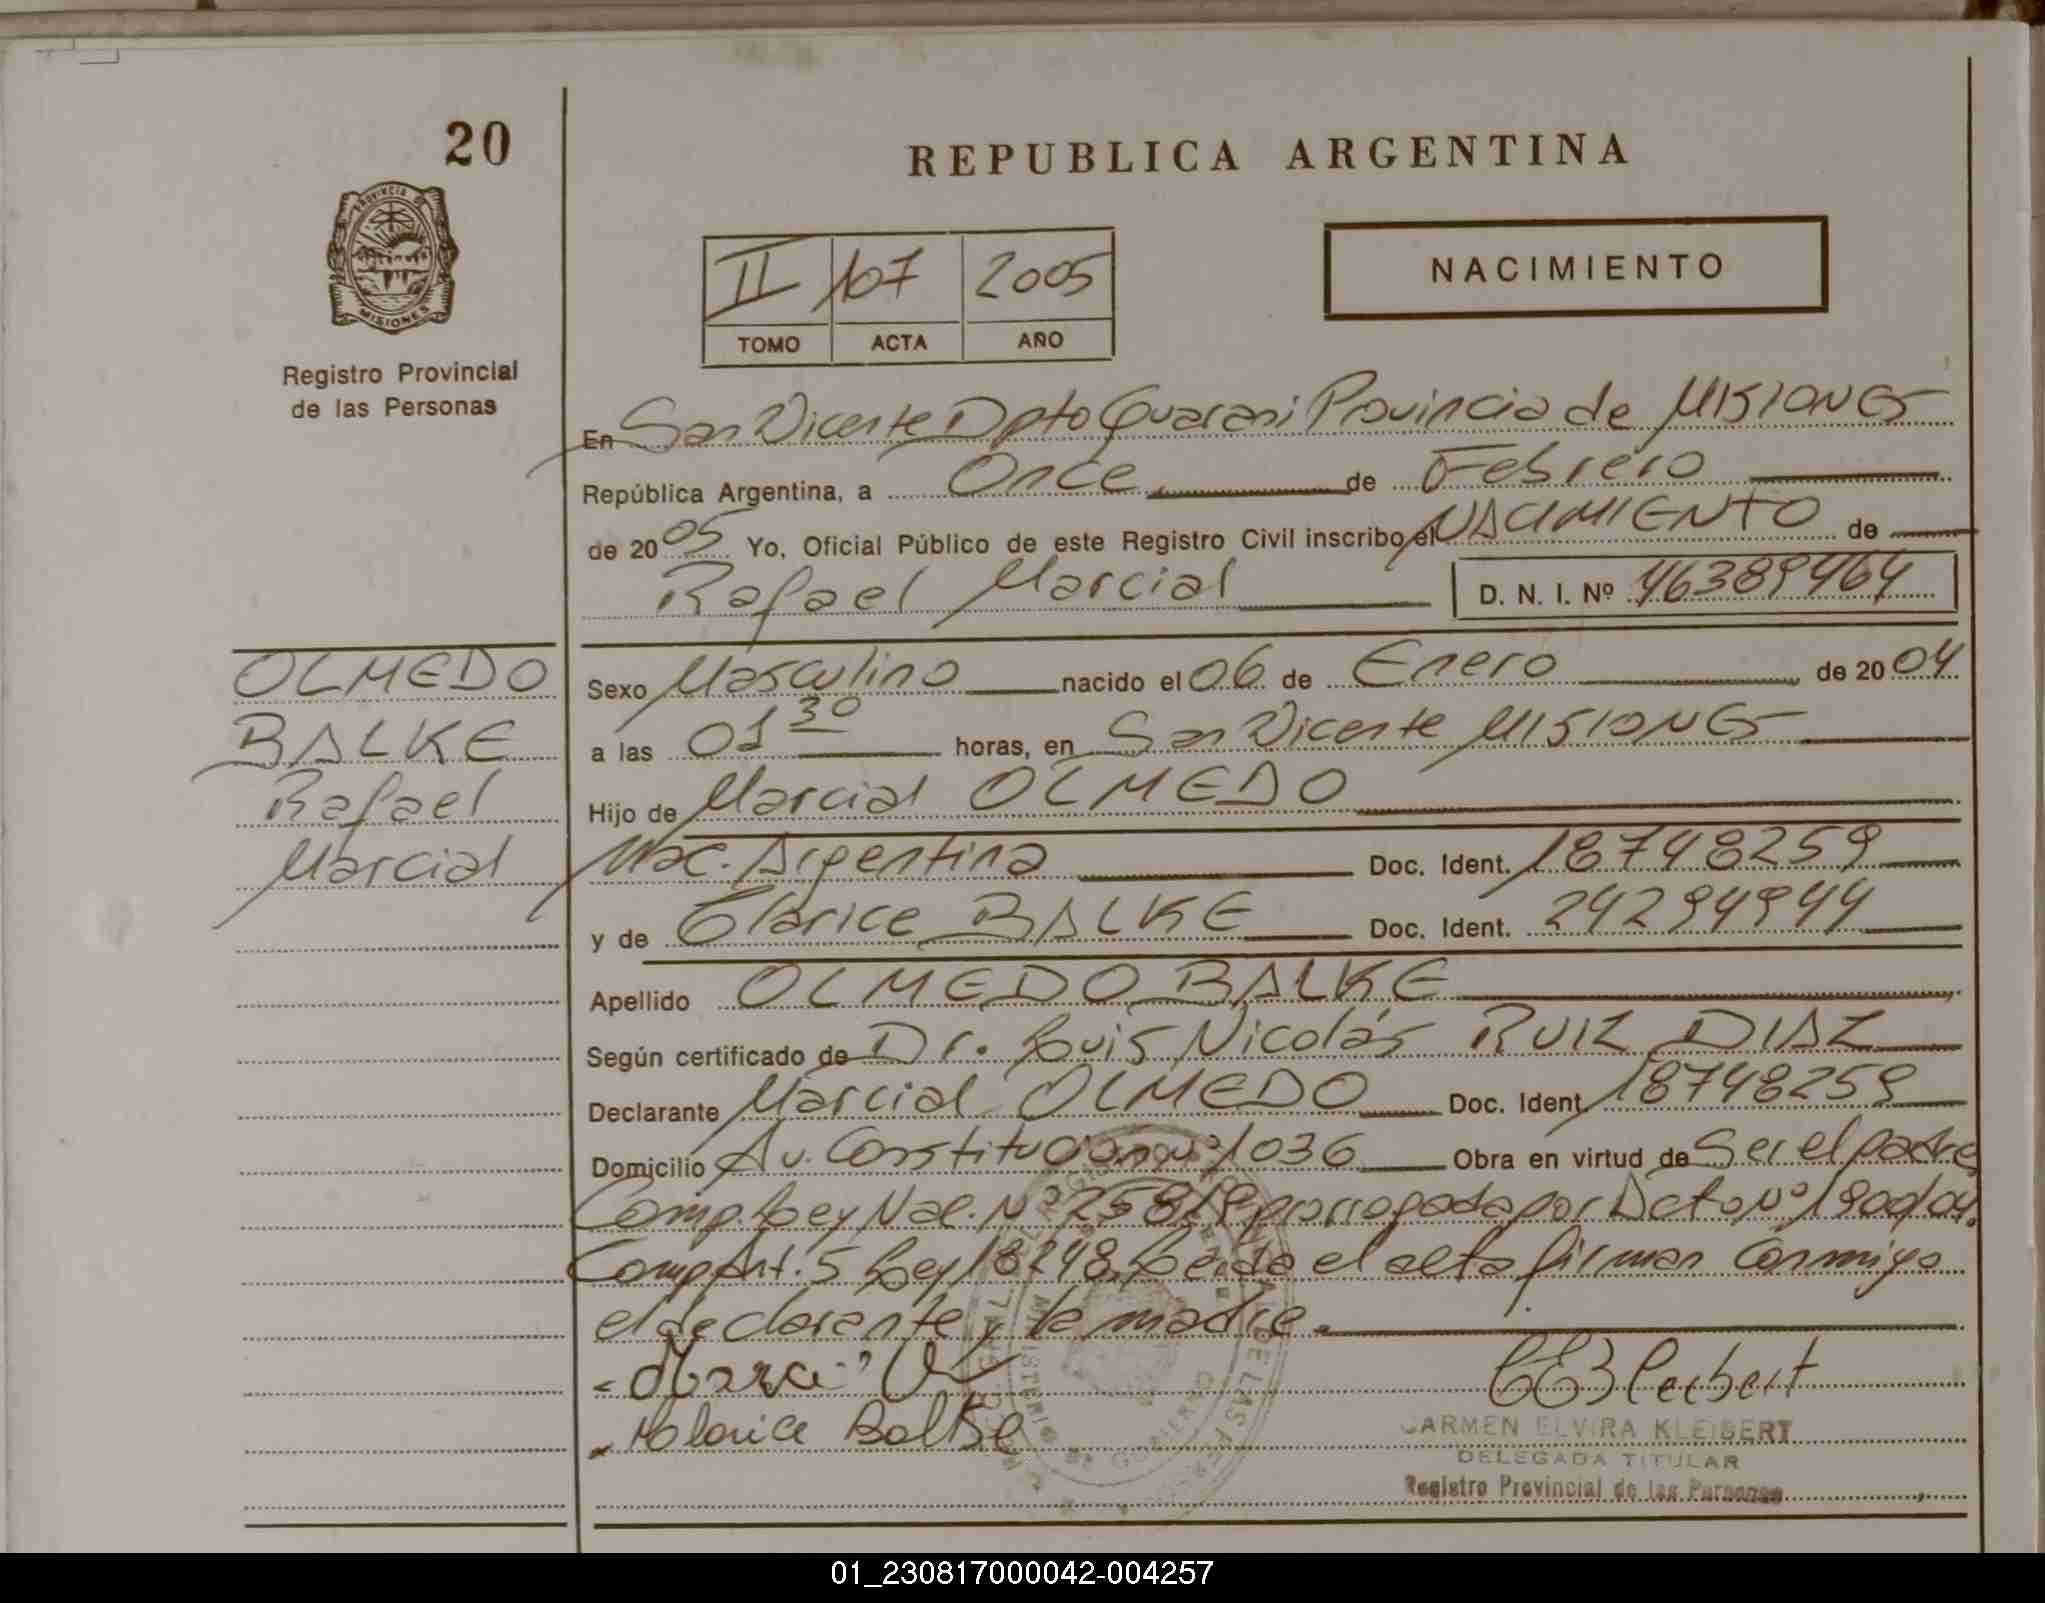 20
REPUBLICA ARGENTINA
PROVINCIA DE
MISIONES
Registro Provincial
de las Personas
II 107 2005
TOMO ACTA AÑO
NACIMIENTO
En San Vicente Dpto Guarani Provincia de MISIONES
República Argentina, a Once de Febrero
de 2005 Yo, Oficial Público de este Registro Civil inscribo el NACIMIENTO de
Rafael Marcial D. N. I. Nº 46389464
OLMEDO
BALKE
Rafael
Marcial
Sexo Masculino nacido el 06 de Enero de 2004
a las 01 30 horas, en San Vicente MISIONES
Hijo de Marcial OLMEDO
Nac. Argentina Doc. Ident. 18748259
y de Clarice BALKE Doc. Ident. 24294944
Apellido OLMEDO BALKE
Según certificado de Dr. Luis Nicolás RUIZ DIAZ
Declarante Marcial OLMEDO Doc. Ident. 18748259
Domicilio Av. Constitución nº 1036 Obra en virtud de Ser el padre
Comp. Ley Nac. Nº 25819 prorrogada por Dcto Nº 1900/04.
Comp Art. 5 Ley 18248. Leida el acta firman conmigo
el declarante y la madre.
Clarice Balke
CARMEN ELVIRA KLEIBERT
DELEGADA TITULAR
Registro Provincial de las Personas
01_230817000042-004257